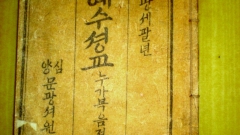 광세팔년
예수셩교
누가복음젼
심양
문광셔원